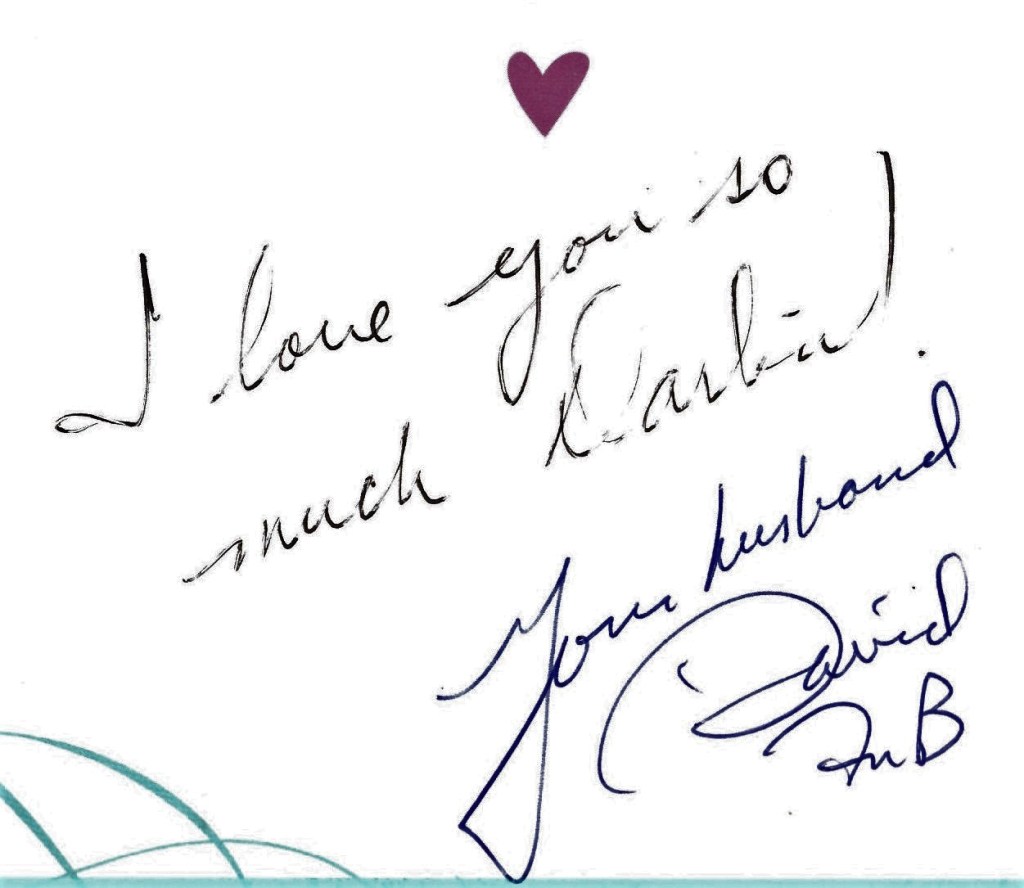 I love you so
much Darlin!
Your husband
David